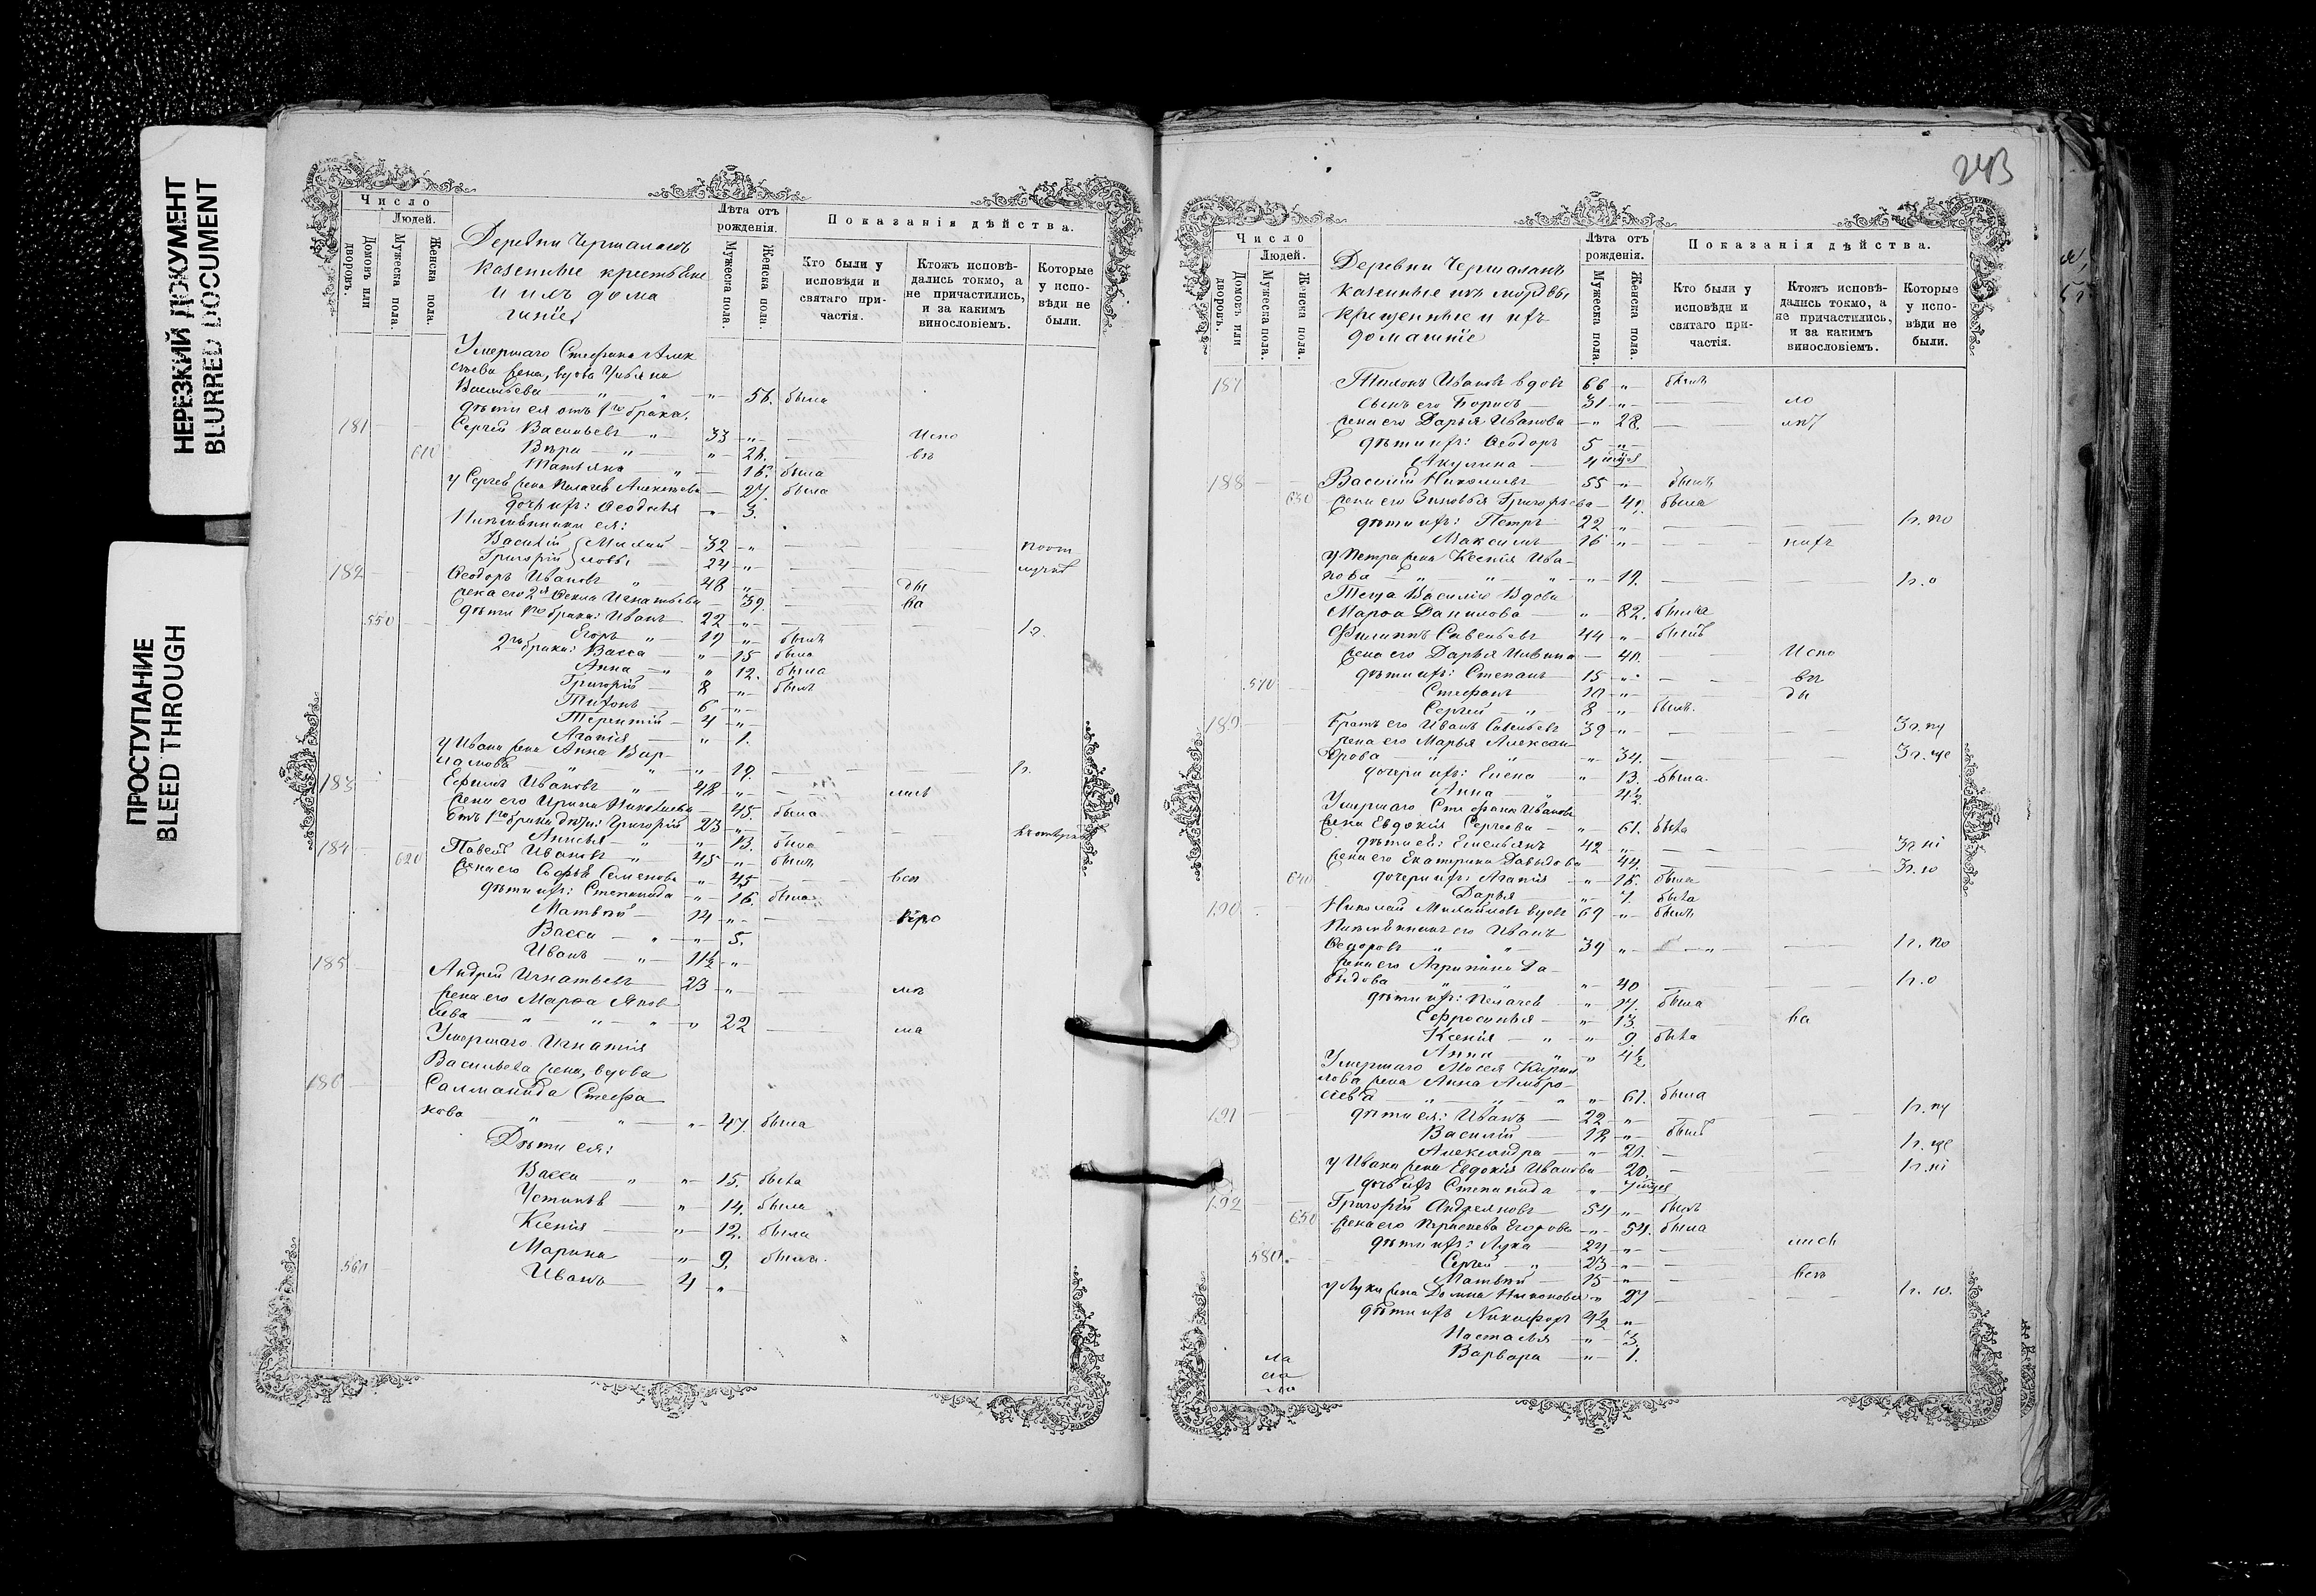 НЕРЕЗКИЙ ДОКУМЕНТ
BLURRED DOCUMENT
ПРОСТУПАНИЕ
BLEED THROUGH
Число
Людей.
Домовъ или дворовъ.
Мужеска пола.
Женска пола.
Деревни Чермалакъ
казенные крестьяне
и ихъ дома
шніе
Лѣта отъ рожденія.
Мужеска пола.
Женска пола.
Показанія дѣйства.
Кто были у исповѣди и святаго при-частія.
Ктожъ исповѣ-дались токмо, а не причастились, и за какимъ винословіемъ.
Которые у испо-вѣди не были.
Умершаго Стефана Алек
сѣева жена, вдова
Васильева " " " 56. была
дѣти ея отъ 1го брака:
181 Сергѣй Васильевъ " 33 " Испо
610 Вѣра " " 24. вѣ
Татьяна " была
у Сергѣя жена Пелагея Алексѣева 27. была
дочь ихъ: Ѳеодосья " 3.
Племянники ея:
Василій 32 "
Григорій 24 "
182 Ѳеодоръ Ивановъ " 48 " ды
жена его 2я Ѳекла Игнатьева 39. ва
550 дѣти 1го брака: Иванъ 22 "
Егоръ " 19 " былъ
2го брака: Васса " 15 была
Анна " " 12. была
Григорій 8 " былъ
Тихонъ 6 "
Терентій 4 "
Агапія " 1.
у Ивана жена Анна Вар-
ламова " " " 19.
183 Ефимъ Ивановъ " 48 "
жена его Ирина Николаева 45. была
отъ 1го брака дѣти: Григорій 23 "
Анисья " " 13. была
184 620 Павелъ Ивановъ " 45 " былъ
жена его Софья Семенова " 45 всп
дѣти ихъ: Степанида " 16. была
Матвѣй 14 "
Васса " " 5.
Иванъ " 1½ "
185 Андрей Игнатьевъ 23 "
жена его Марѳа Яков
лева " " " " 22 ма
Умершаго Игнатія
Васильева жена, вдова
186 Салманида Стефа
нова " " " 47. была
Дѣти ея:
Васса " " 15. была
Устинья " 14. была
Ксенія " 12. была
Марина " 9. была.
560 Иванъ 4 "
243
Число
Людей.
Домовъ или дворовъ.
Мужеска пола.
Женска пола.
Деревни Чермалакъ
казенные изъ мордвы
крещенные и ихъ
домашніе
Лѣта отъ рожденія.
Мужеска пола.
Женска пола.
Показанія дѣйства.
Кто были у исповѣди и святаго при-частія.
Ктожъ исповѣ-дались токмо, а не причастились, и за какимъ винословіемъ.
Которые у испо-вѣди не были.
187 Ивановъ вдовъ 66 " былъ
Сынъ его Борисъ 31 " ло
жена его Дарья Иванова " 28.
дѣти ихъ: Ѳеодоръ 5 "
Акулина
188 Василій Николаевъ 55 " былъ
630 жена его Зиновья Григорьева была
дѣти ихъ: Петръ 22 " 1г. по
Максимъ 16 "
у Петра жена Ксенія Ива-
нова " " " " 19. 1г. о
Теща Василія вдова
Марѳа Данилова " 82. была
Филиппъ Савельевъ 44 " былъ
жена его Дарья Ильина 40. Испо
570 дѣти ихъ: Степанъ 15 " вѣ
Стефанъ 10 " ды
Сергѣй " 8 " былъ.
189 братъ его Иванъ Савельевъ 39 " 3г. пу
жена его Марья Алексан-
дрова " " " 34. 3г. ще
дочери ихъ: Елена " 13. была.
Анна " 4½
Умершаго Стефана Иванова
жена Евдокія Сергеева " 61. была
дѣти ей: Емельянъ 42 " 3г. ні
жена его Екатерина Давыдова 44. 3г. ю
640 дочери ихъ: Агапія " 15. была
Дарья " 7. была
190 Николай Михайловъ вдовъ 69 " былъ
Племянникъ его Иванъ
Ѳедоровъ " " 39 " 1г. по
жена его Агрипина Да-
выдова " " 40 1г. о
дѣти ихъ: Пелагея " была
Ефросинья " 13. ва
Ксенія " " 9. была
Анна " " 4½
Умершаго Мосея Кирил
лова жена Анна Амбро-
сіева " " " 61. была
191 дѣти ея: Иванъ 22 " 1г. пу
Василій 18 " былъ
Александра " 21. 1г. ще
у Ивана жена Евдокія Иванова 20. 1г. ні
дочь ихъ Степанида "
192 Григорій Андреяновъ 54 " былъ
650 жена его Параскева Егорова " 54. была
дѣти ихъ: Лука 24 "
580. Сергѣй " 23 "
Матвѣй 15 "
у Луки жена Домна Никонова " 27 1г. ю.
дѣти ихъ Никифоръ 4½ "
Настасья " 3.
Варвара " 1.